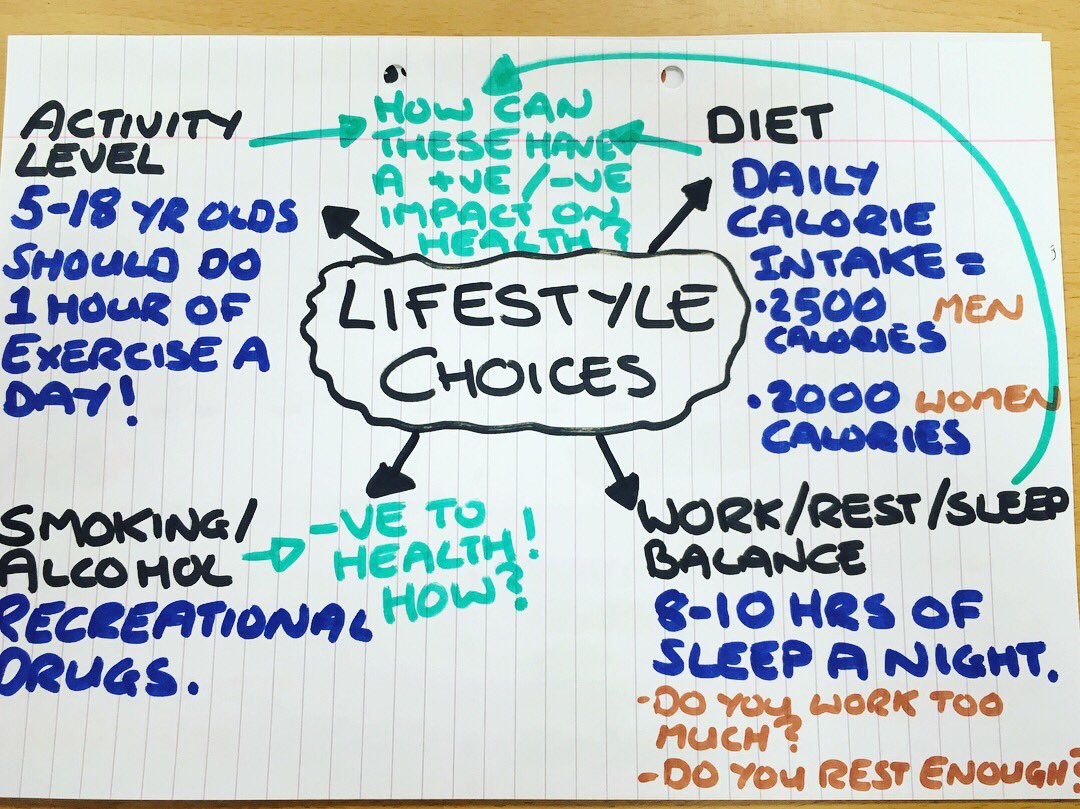 ACTIVITY
LEVEL
5-18 YR OLDS
SHOULD DO
1 HOUR OF
EXERCISE A
DAY!
HOW CAN
THESE HAVE
A +VE/-VE
IMPACT ON
HEALTH?
DIET
DAILY
CALORIE
INTAKE =
·2500 MEN
CALORIES
·2000 WOMEN
CALORIES
LIFESTYLE
CHOICES
SMOKING/
ALCOHOL
RECREATIONAL
DRUGS.
-VE TO
HEALTH!
HOW?
WORK/REST/SLEEP
BALANCE
8-10 HRS OF
SLEEP A NIGHT.
-DO YOU WORK TOO
MUCH?
-DO YOU REST ENOUGH?